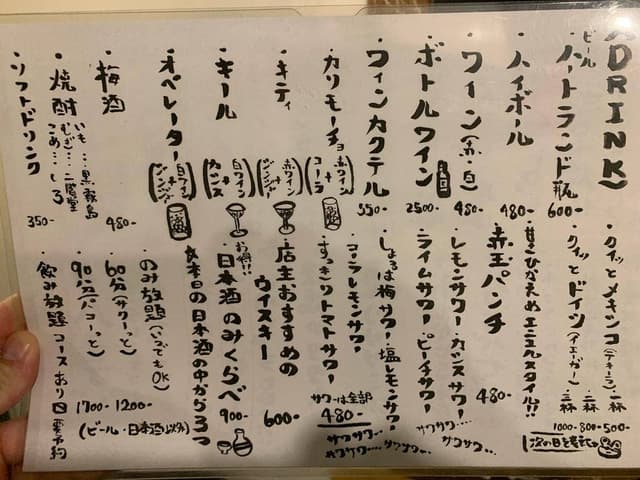 DRINK
ビール
・ハートランド瓶 600-
・ハイボール 480-
・ワイン(赤・白) 480-
・ボトルワイン 2500-
・ワインカクテル 550-
・カリモーチョ (赤ワイン+コーラ)
・キティ (赤ワイン+ジンジャー)
・キール (白ワイン+カシス)
・オペレーター (白ワイン+ジンジャー)
・梅酒 480-
・焼酎
いも…黒霧島
むぎ…二階堂
こめ…しろ
・ソフトドリンク 350-
・クイッとメキシコ(テキーラ)
・クイッとドイツ(イエーガー)
・一杯 500-
・二杯 800-
・三杯 1000-
次の日を考えて
甘さひかえめエニエルスタイル!!
・赤玉パンチ 480-
・レモンサワー・カシスサワー
・ライムサワー・ピーチサワー
・しょうは梅サワー・塩レモンサワー
・コーラレモンサワー
・すっきりトマトサワー
サワーは全部
480-
サワサワ…
・店主おすすめの
ウイスキー 600-
お得!!
・日本酒のみくらべ 900-
本日の日本酒の中から3つ
・のみ放題(いつでもOK)
・60分(サクーっと) 1200-
・90分(バコーっと) 1700-
(ビール・日本酒以外)
・飲み放題コースあり 要予約